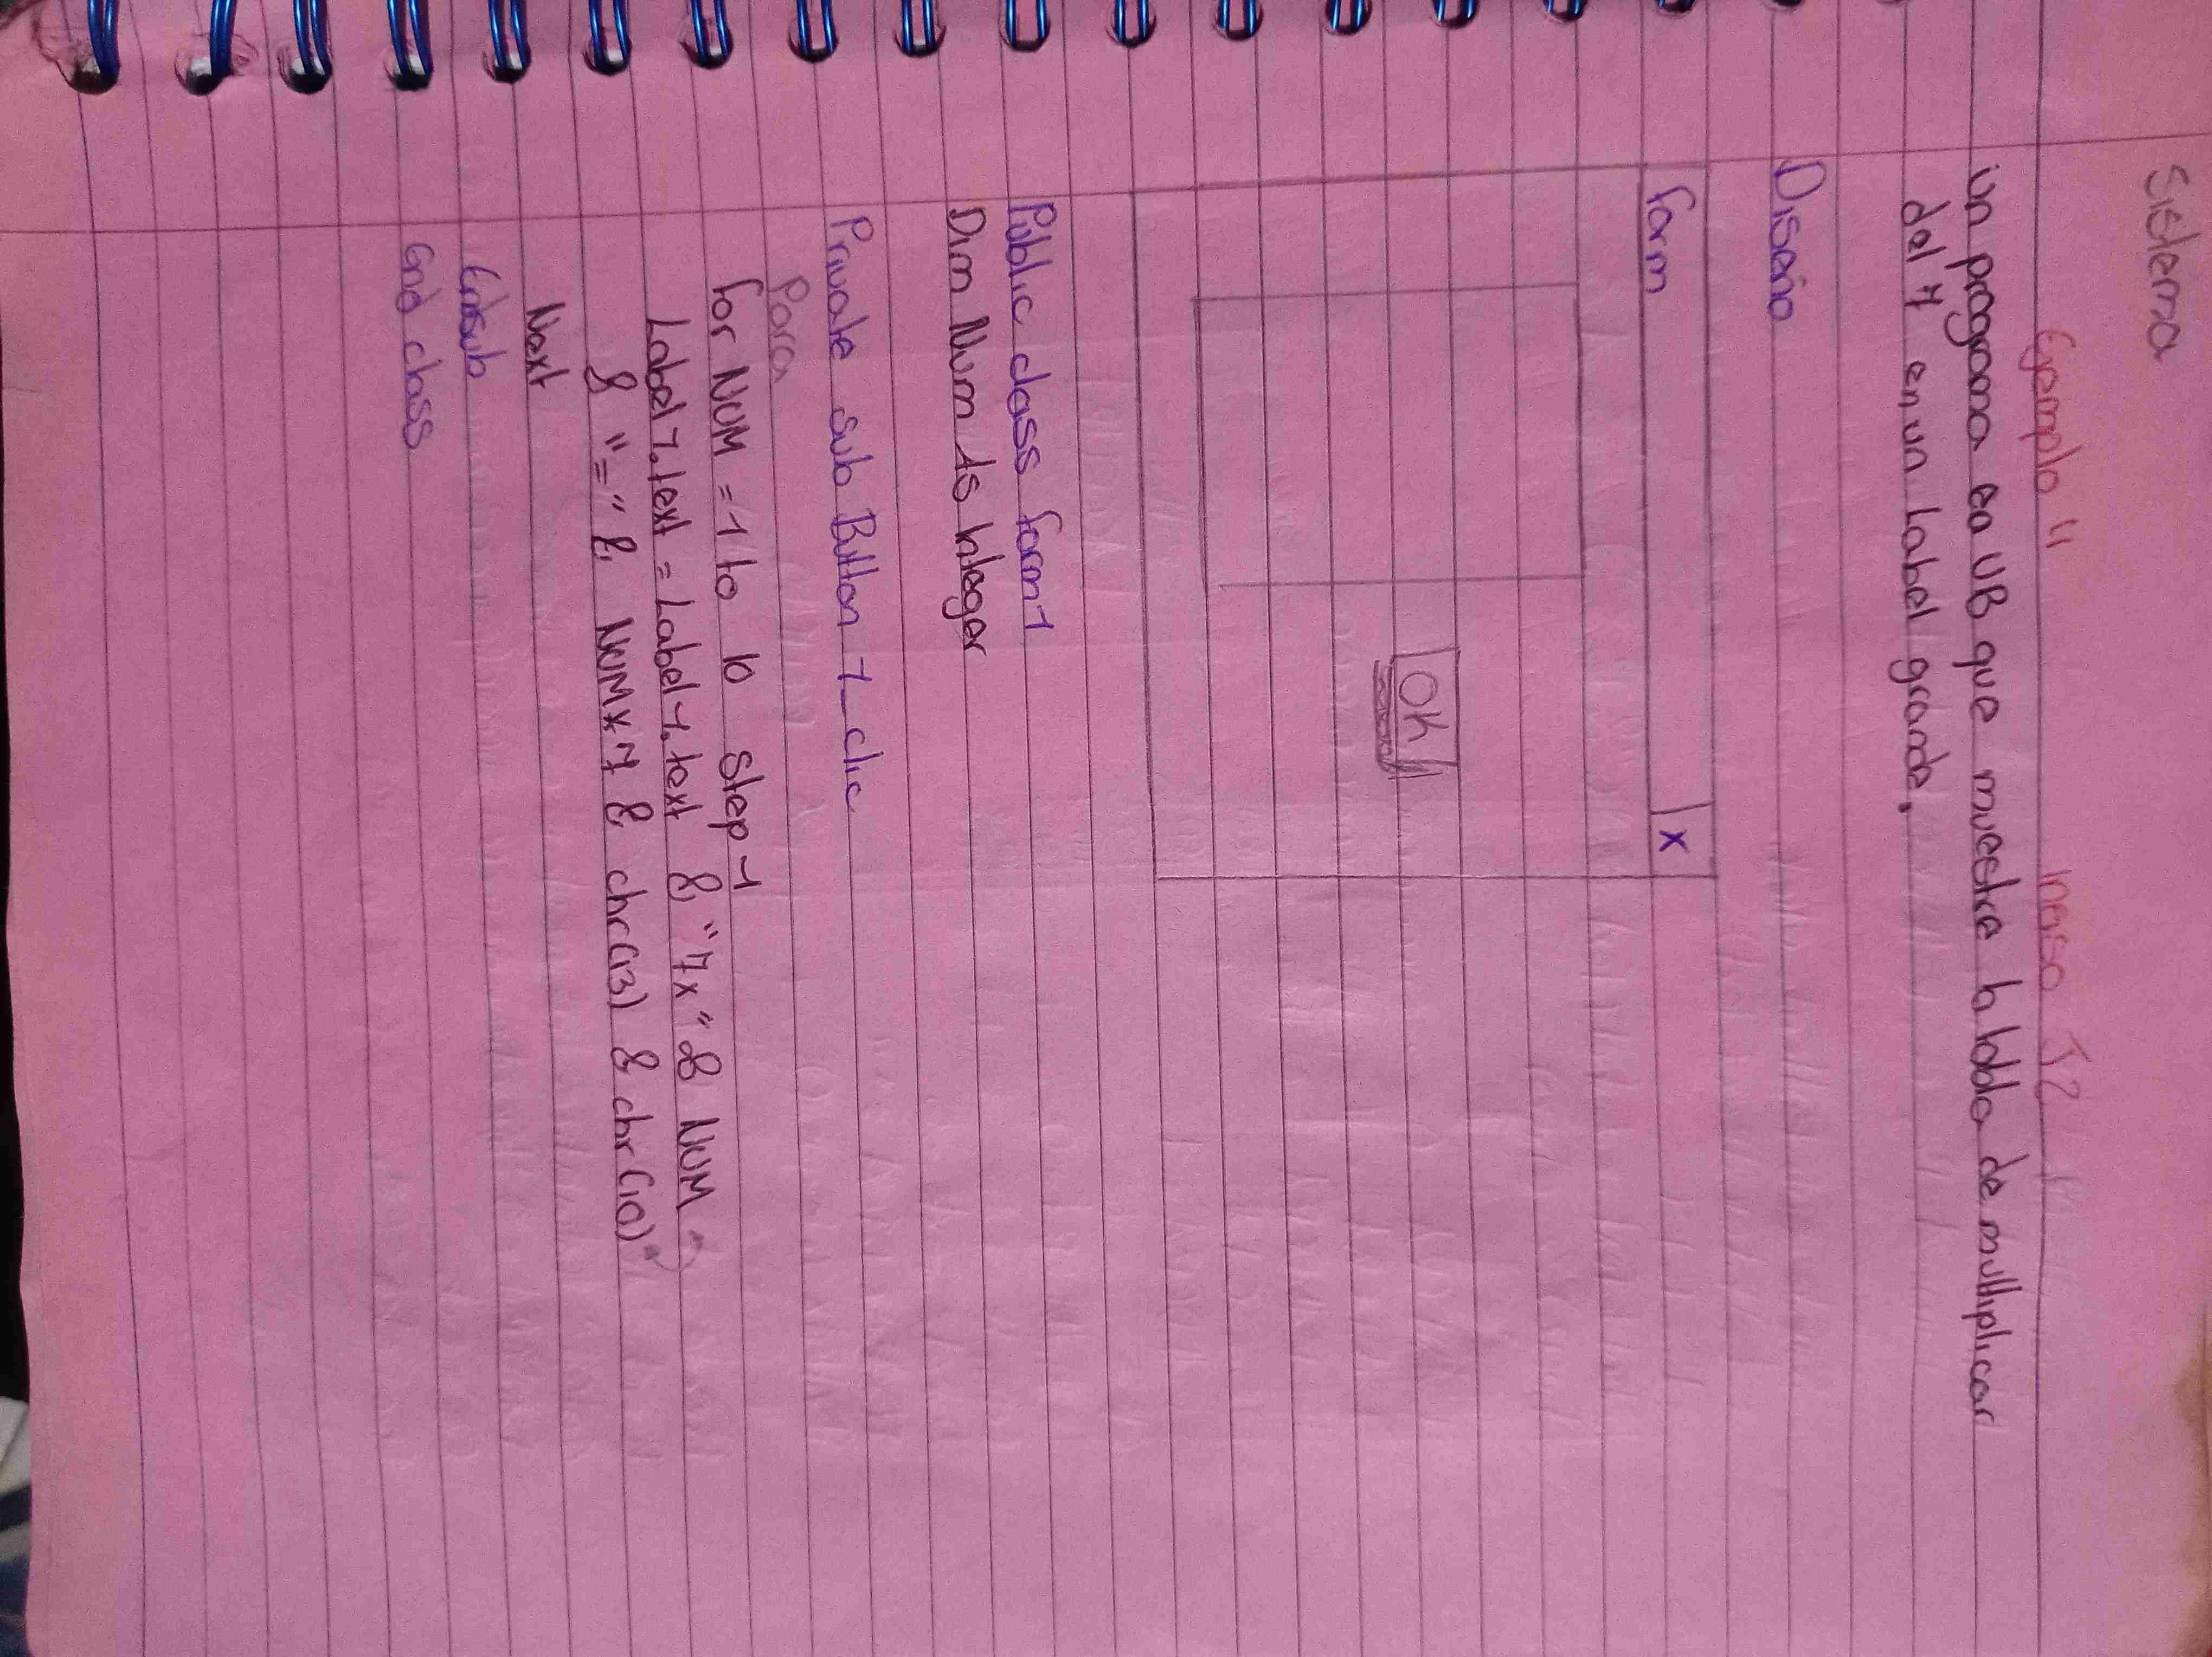 Sistema
Ejemplo 4
Un programa en VB que muestre la tabla de multiplicar
del 7 en un label grande.
Diseño
Form x
OK
Public class form1
Dim Num As Integer
Private sub Button 1_clic
Para
for NUM = 1 to 10 step 1
Label1.text = Label1.text & "7x" & NUM
& "=" & NUM x 7 & chr(13) & chr(10)
Next
Endsub
End class